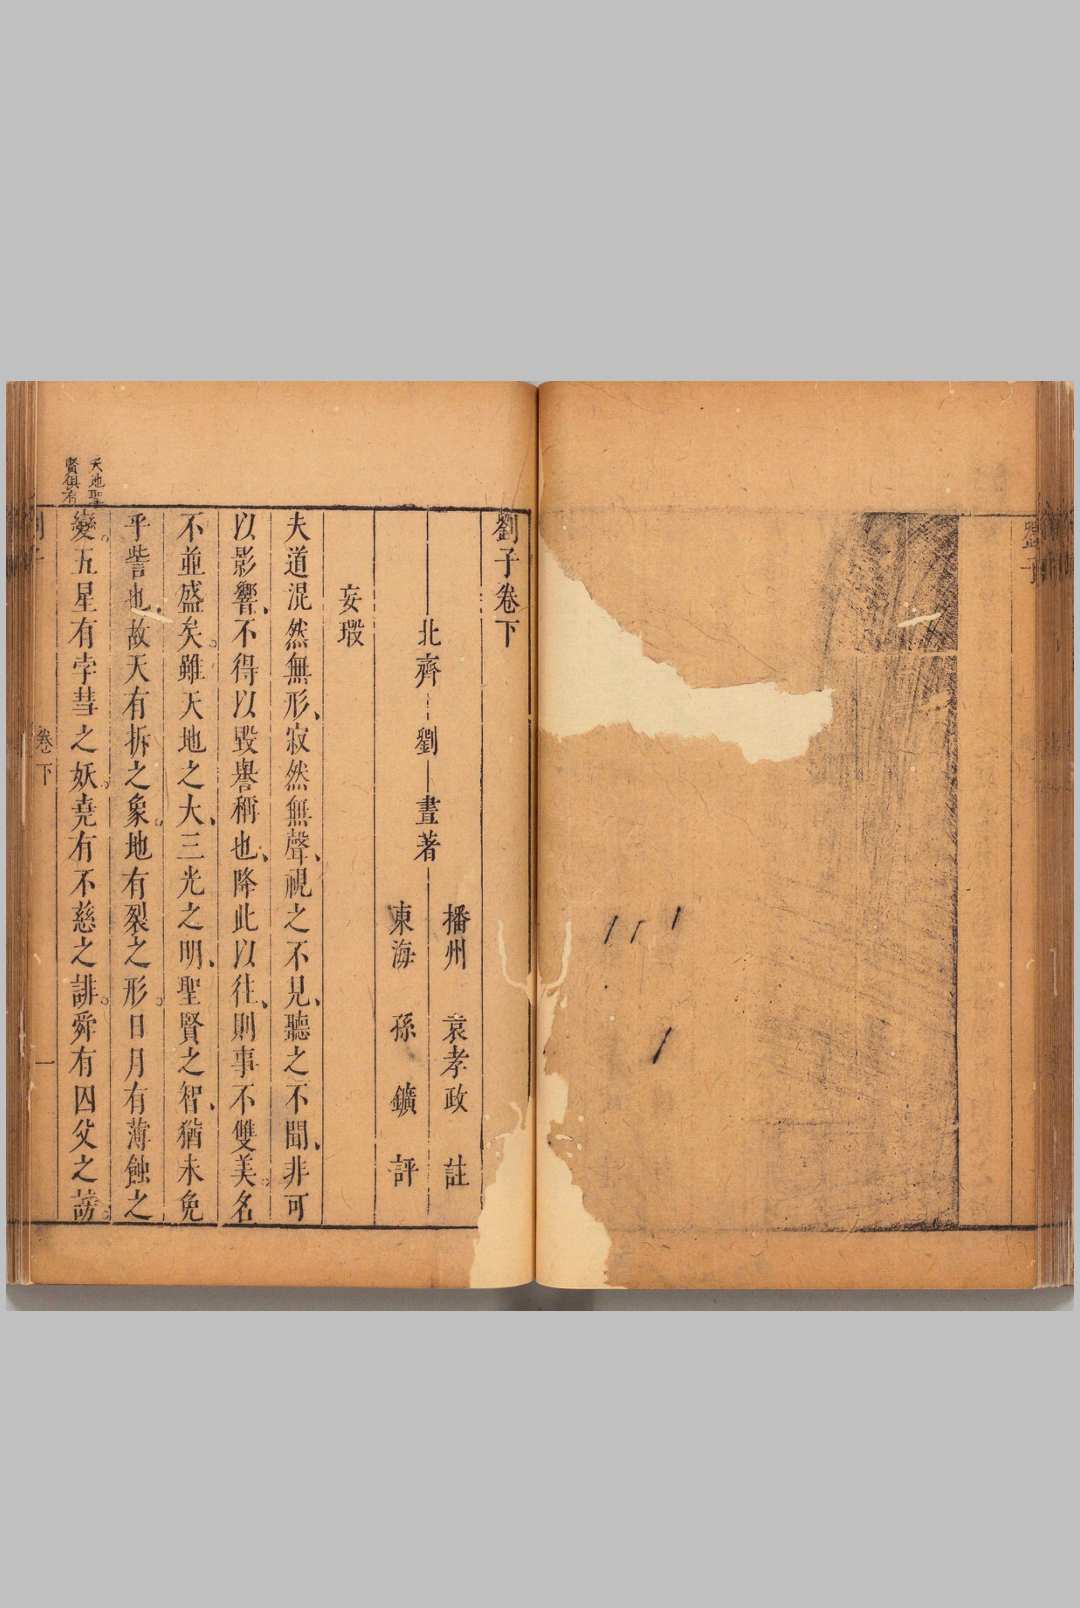 劉子卷下
播州 袁孝政 註
北齊 劉 晝著
東海 孫 鑛 評
妄瑕
夫道混然無形、寂然無聲、視之不見、聽之不聞、非可
以影響、不得以毀譽稱也、降此以往、則事不雙美。名
不並盛矣。雖天地之大、三光之明、聖賢之智、猶未免
乎訾也、故天有拆之象。地有裂之形。日月有薄蝕之
變。五星有孛彗之妖。堯有不慈之誹。舜有囚父之謗。
天地聖
賢俱有
卷下
一